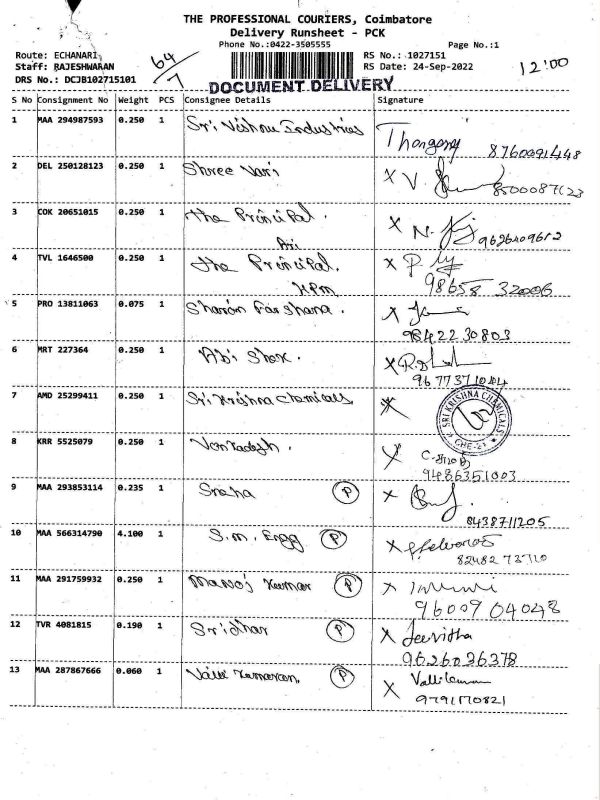 THE PROFESSIONAL COURIERS, Coimbatore
Delivery Runsheet - PCK
Phone No.:0422-3505555 Page No.:1
Route: ECHANARI 64/7 RS No.: 1027151
Staff: RAJESHWARAN RS Date: 24-Sep-2022 12:00
DRS No.: DCJB102715101
DOCUMENT DELIVERY
S No Consignment No Weight PCS Consignee Details Signature
1 MAA 294987593 0.250 1 Sri Vishnu Industries
8760091448
2 DEL 250128123 0.250 1 Shree Vari V
8500087123
3 COK 20651015 0.250 1 The Principal.
9626409612
4 TVL 1646500 0.250 1 The Principal.
98658 32006
5 PRO 13811063 0.075 1 Sharon Farshana.
98422 30803
6 MRT 227364 0.250 1 Abi Stox.
9677371044
7 AMD 25299411 0.250 1 Sri Krishna Chemicals
SRI KRISHNA CHEMICALS CHE-21
8 KRR 5525079 0.250 1 Venkadesh.
9486351003
9 MAA 293853114 0.235 1 Sneha P
8438711205
10 MAA 566314790 4.100 1 S.M. Engg P
82482 73710
11 MAA 291759932 0.250 1 Manoj Kumar P
96009 04048
12 TVR 4081815 0.190 1 Sridhar P Jeevitha
9626036378
13 MAA 287867666 0.060 1 P
9791170821